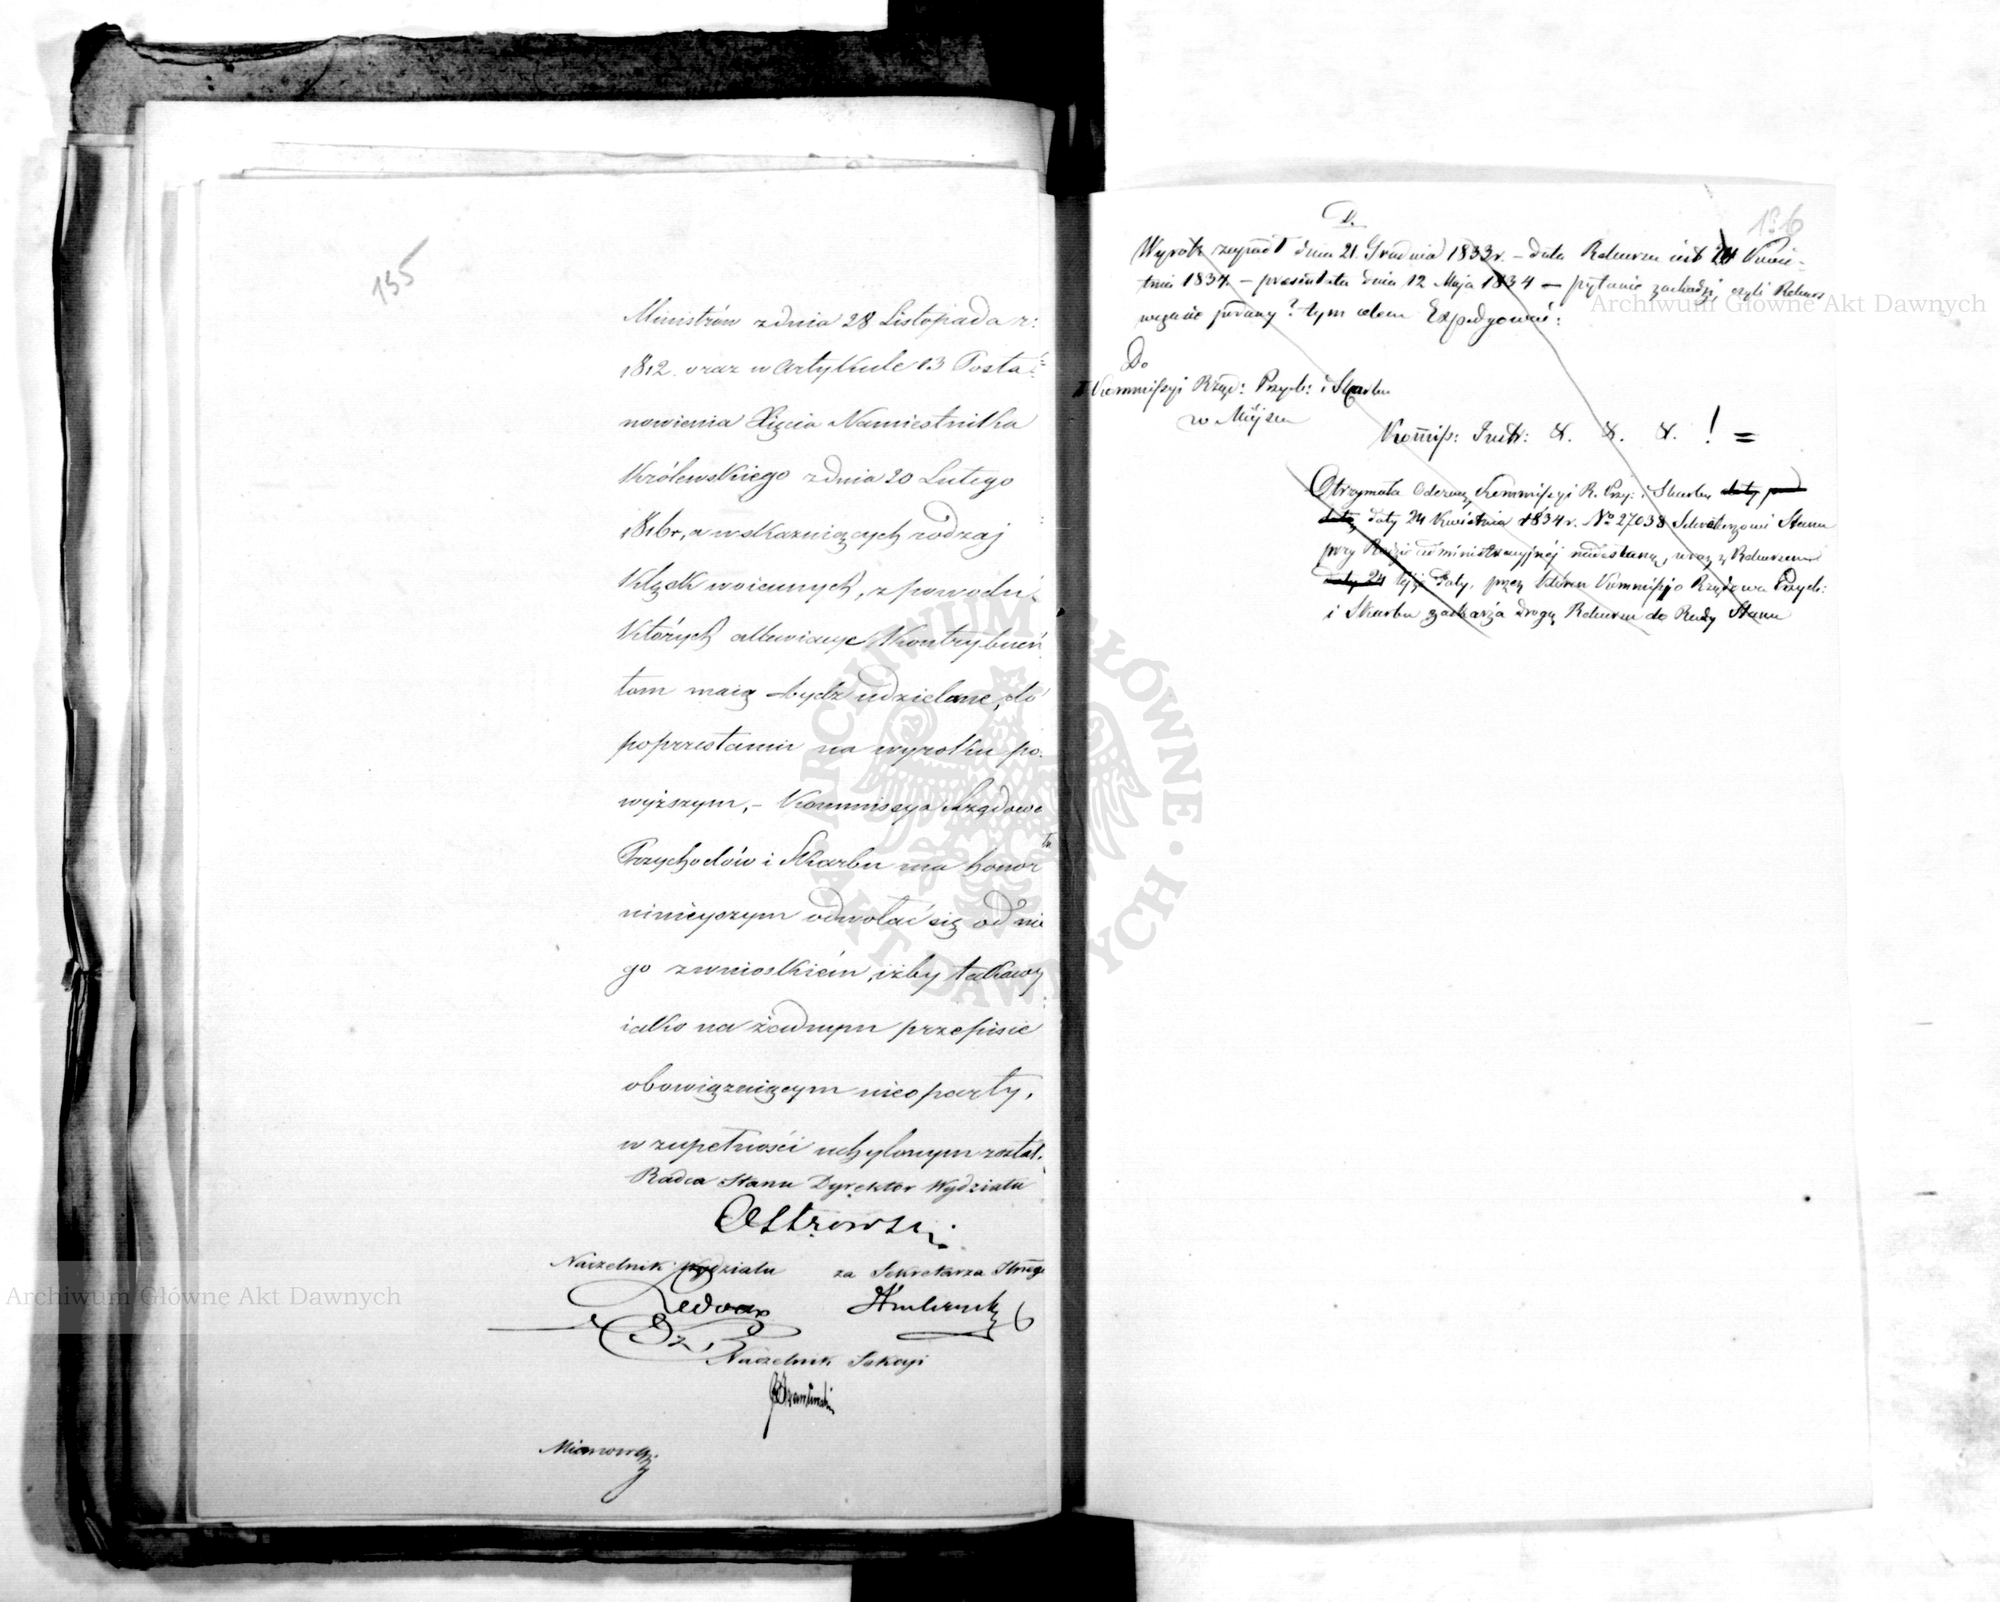 135
Ministrów z dnia 28 Listopada r:
1812. oraz w artykule 13 Posta=
nowienia Xięcia Namiestnika
Królewskiego z dnia 20 Lutego
1816 r, a wskazuiących rodzaj
Klęsk woiennych, z powodu
których allewiacye Kontrybuen
tom maią bydź udzielane, do
poprzestania na wyroku po.
wyższym, – Kommissya Rządowa
Przychodów i Skarbu ma honor
ninieyszym odwołać się od nie
go z wnioskiem, iżby takowy
iako na żadnym przepisie
obowiązuiącym nieoparty,
w zupełności uchylonym został.
Radca Stanu Dyrektor Wydziału
Ostrowski
Naczelnik Wydziału
za Sekretarza
Naczelnik Sekcyi
136
D.
Wyrok zapadł dnia 21. Grudnia 1833 r. – data Rekursu jest 24 Kwie-
tnia 1834. – praesentata dnia 12 Maja 1834 – pytanie zachodzi, czyli Rekurs
wczasie podany? tym celem Expedyować:
Do
Kommissyi Rząd: Przych: i Skarbu
w Mieyscu
Kommiss: Instr: &. &. &. ! =
Otrzymała Odezwę Kommissyi R. Przy: i Skarbu
daty 24 Kwietnia 1834 r. No 27038 Sekretarzowi Stanu
przy Radzie Administracyjnéj nadesłaną, wraz z Rekursem
téjże daty, przez który Kommissja Rządowa Przych:
i Skarbu zaskarża drogą Rekursu do Rady Stanu
Archiwum Główne Akt Dawnych
Archiwum Główne Akt Dawnych
ARCHIWUM GŁÓWNE AKT DAWNYCH